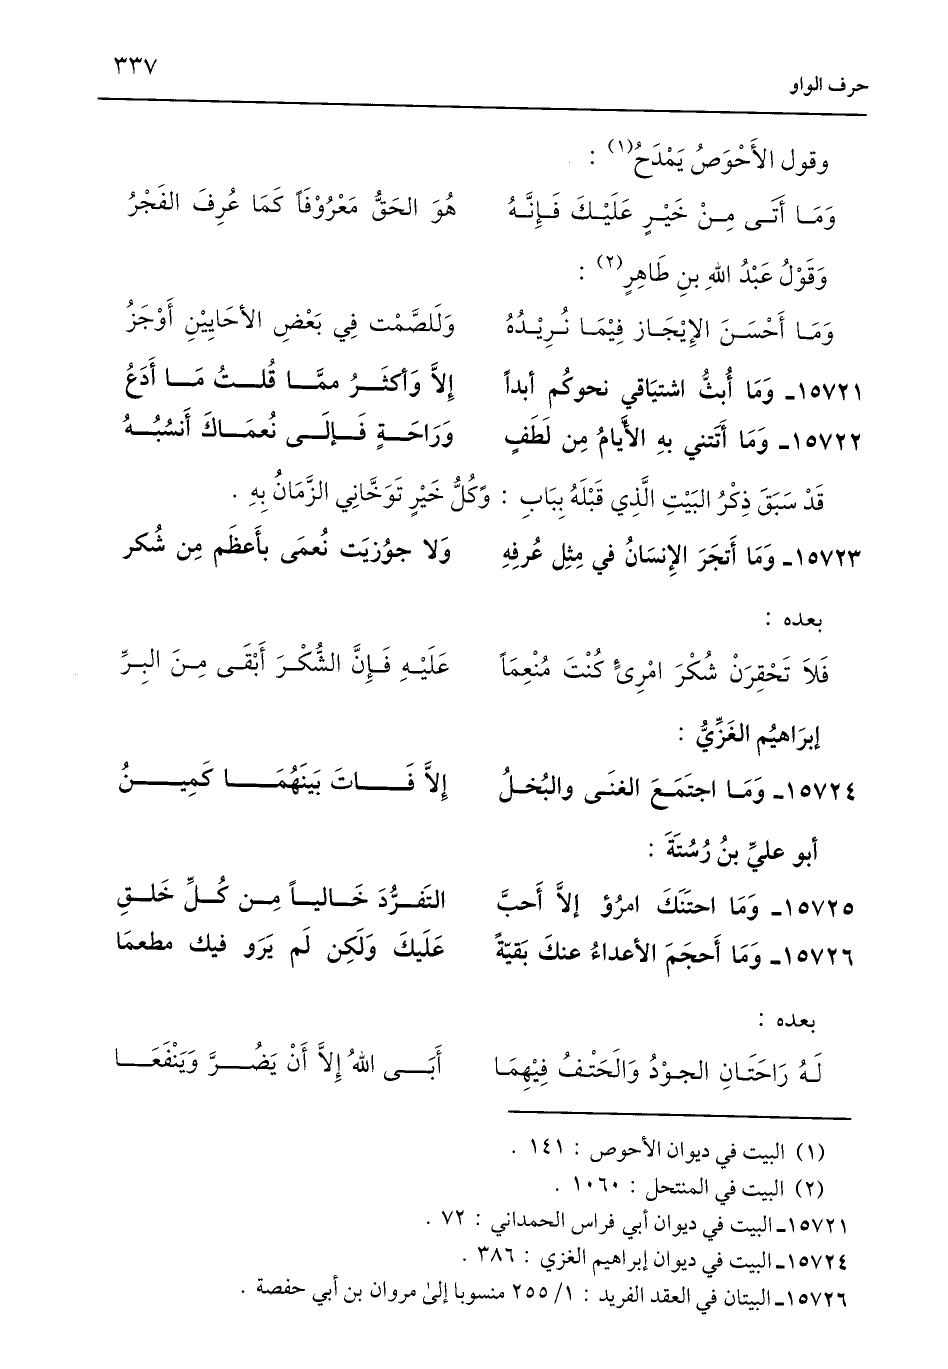 ٣٣٧
حرف الواو
وقول الأَحْوَصُ يَمْدَحُ(١) :
وَمَـا أَتَـى مِـنْ خَيْـرٍ عَلَيْـكَ فَـإِنَّـهُ هُوَ الحَقُّ مَعْرُوْفَاً كَمَا عُرِفَ الفَجْرُ
وَقَوْلُ عَبْدُ اللهِ بنِ طَاهِرٍ(٢) :
وَمَـا أَحْسَـنَ الإِيْجَـازِ فِيْمَـا نُـرِيْـدُهُ وَلَلصَّمْت فِي بَعْضِ الأحَايِيْنِ أَوْجَزُ
١٥٧٢١ـ وَمَا أُبثُّ اشتيَاقي نحوكُم أبداً إلاَّ وَأكثَـرُ ممَّـا قُلـتُ مَـا أَدَعُ
١٥٧٢٢ـ وَمَا أَتَتني بهِ الأَيامُ مِن لَطَفٍ وَرَاحَـةٍ فَـإلَـى نُعمَـاكَ أَنسُبُـهُ
قَدْ سَبَقَ ذِكْرُ البَيْتِ الَّذِي قَبْلَهُ بِبَابِ : وَكُلُّ خَيْرٍ تَوَخَّانِي الزَّمَانُ بِهِ .
١٥٧٢٣ـ وَمَا أَتجَرَ الإِنسَانُ في مِثِل عُرفِهِ وَلا جوُزيَت نُعمَى بأَعظَم مِن شُكر
بعده :
فَلاَ تَحْقِرَنْ شُكْرَ امْرِئٍ كُنْتَ مُنْعِمَاً عَلَيْـهِ فَـإِنَّ الشُّكْـرَ أَبْقَـى مِـنَ البِرِّ
إبرَاهيُم الغَزِّيُّ :
١٥٧٢٤ـ وَمَـا اجتَمَـعَ الغنَـى والبُخـلُ إلاَّ فَـاتَ بَينَهُمَـا كَميـنُ
أبو عليِّ بنُ رُستَةَ :
١٥٧٢٥ـ وَمَا احتَنَكَ امرُؤ إلاَّ أَحبَّ التفَـرُّدَ خَـاليـاً مِـن كُـلِّ خَلـقِ
١٥٧٢٦ـ وَمَا أَحجَمَ الأعداءُ عنكَ بَقيّةً عَلَيكَ وَلَكِن لَم يَرَو فيك مطعمَا
بعده :
لَـهُ رَاحَتَـانِ الجـوْدُ وَالحَتْـفُ فِيْهِمَـا أَبَـى اللهُ إِلاَّ أَنْ يَضُـرَّ وَيَنْفَعَـا
(١) البيت في ديوان الأحوص : ١٤١ .
(٢) البيت في المنتحل : ١٠٦٠ .
١٥٧٢١ـ البيت في ديوان أبي فراس الحمداني : ٧٢ .
١٥٧٢٤ـ البيت في ديوان إبراهيم الغزي : ٣٨٦ .
١٥٧٢٦ـ البيتان في العقد الفريد : ١/ ٢٥٥ منسوبا إلىٰ مروان بن أبي حفصة .